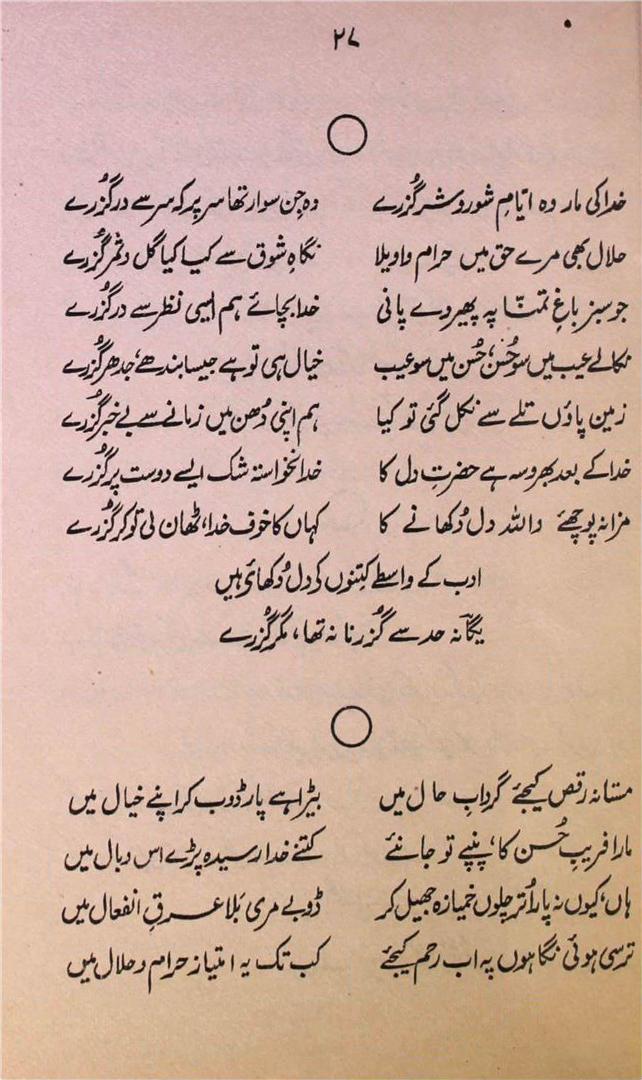 ۲۷
خدا کی مار وہ ایامِ شور و شر گُزرے وہ جِن سوار تھا سر پر کہ سر سے در گُزرے
حلال بھی مرے حق میں حرام واویلا نگاہِ شوق سے کیا کیا گل و ثمر گُزرے
جو سبز باغِ تمنّا پہ پھیر دے پانی خدا بچائے ہم ایسی نظر سے در گُزرے
نکالے عیب میں سو حُسن، حُسن میں سو عیب خیال ہی تو ہے جیسا بندھے، جدھر گُزرے
زمین پاؤں تلے سے نکل گئی تو کیا ہم اپنی دُھن میں زمانے سے بے خبر گُزرے
خدا کے بعد بھروسہ ہے حضرتِ دل کا خدا نخواستہ شک ایسے دوست پر گُزرے
مزا نہ پوچھئے واللہ دل دُکھانے کا کہاں کا خوف خدا، ٹھان لی تو کر گُزرے
ادب کے واسطے کِتنوں کے دل دُکھائے ہیں
یگانہؔ حد سے گُزرنا نہ تھا، مگر گُزرے
مستانہ رقص کیجئے گردابِ حال میں بیڑا ہے پار ڈوب کر اپنے خیال میں
مارا فریبِ حُسن کا، پنپے تو جانئے کتنے خدا رسیدہ پڑے اس وبال میں
ہاں، کیوں نہ پار اُتر چلوں خمیازہ جھیل کر ڈوبے مری بَلا عرقِ انفعال میں
ترسی ہوئی نگاہوں پہ اب رحم کیجئے کب تک یہ امتیاز حرام و حلال میں